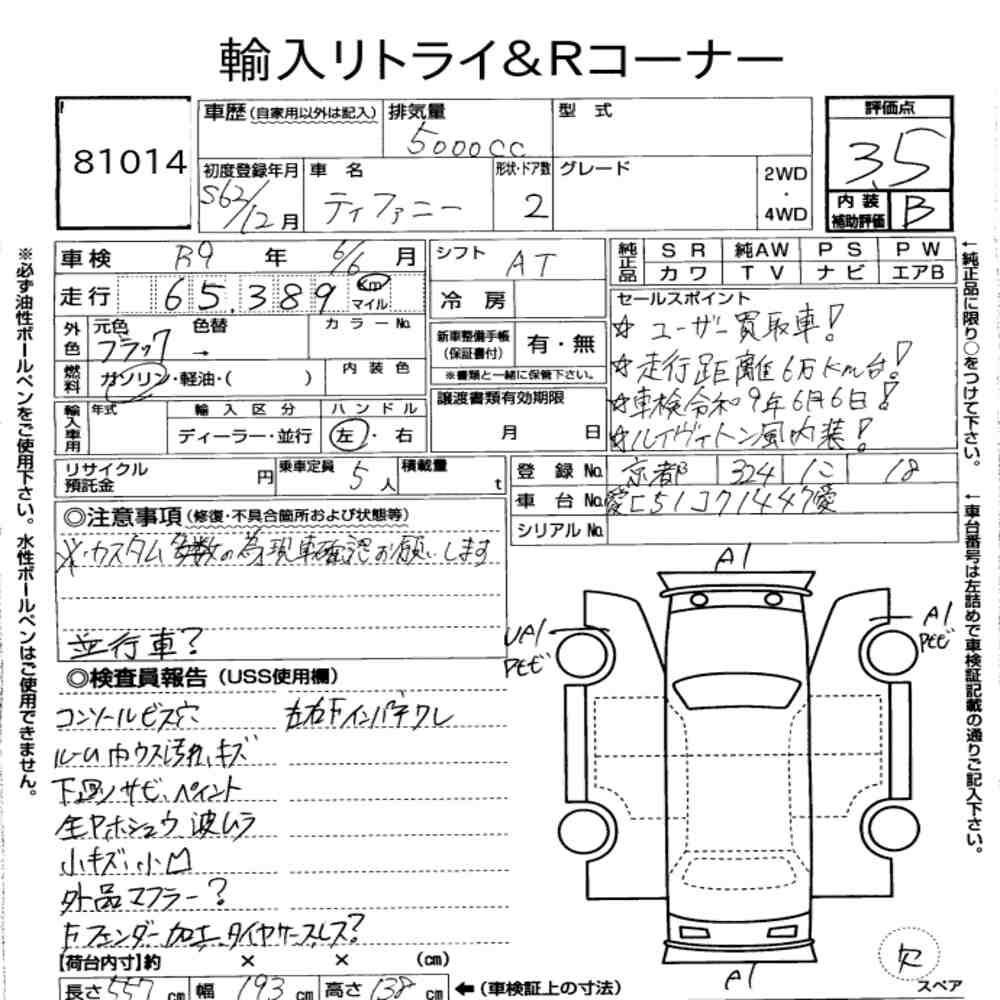 輸入リトライ&Rコーナー
81014
車歴 (自家用以外は記入)
排気量
5000cc
型式
評価点
3.5
初度登録年月
S62/12月
車名
ティファニー
形状・ドア数
2
グレード
2WD
・
4WD
内装
補助評価
B
車検 R9年 6/6月
走行 65,389 Km マイル
シフト AT
冷房
純正品
SR 純AW PS PW
カワ TV ナビ エアB
外色
元色 ブラック →
色替
カラーNo.
燃料
ガソリン・軽油・( )
内装色
新車整備手帳
(保証書付)
有・無
※書類と一緒に保管下さい。
セールスポイント
☆ ユーザー買取車!
☆走行距離6万km台!
☆車検令和9年6月6日!
☆ルイヴィトン風内装!
輸入車用
年式
輸入区分
ディーラー・並行
ハンドル
左・右
譲渡書類有効期限
月 日
リサイクル
預託金
円
乗車定員
5人
積載量
t
登録No. 京都 324 に 18
車台No. 愛C51J71447愛
シリアルNo.
◎注意事項 (修復・不具合箇所および状態等)
※・カスタム多数の為現車確認お願いします
並行車?
◎検査員報告 (USS使用欄)
コンソールビス穴 左右Fインパチワレ
ルーム内ウス汚れ、キズ
下廻りサビ、ペイント
全ヤホシュウ波ムラ
小キズ、小凹
外品マフラー?
Fフェンダー加工、タイヤケースレス?
【荷台内寸】約 × × (cm)
長さ 557 cm 幅 193 cm 高さ 138 cm
←(車検証上の寸法)
A1
A1
UA1
A1
欠
スペア
※必ず油性ボールペンをご使用下さい。水性ボールペンはご使用できません。
←純正品に限り○をつけて下さい。
←車台番号は左詰めで車検証記載の通りご記入下さい。